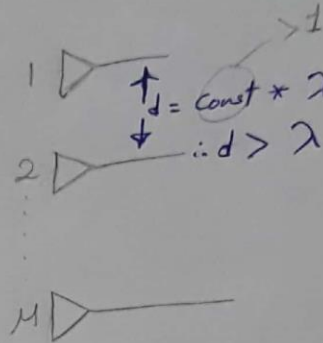 > 1
1
d = const * λ
2
∴ d > λ
M